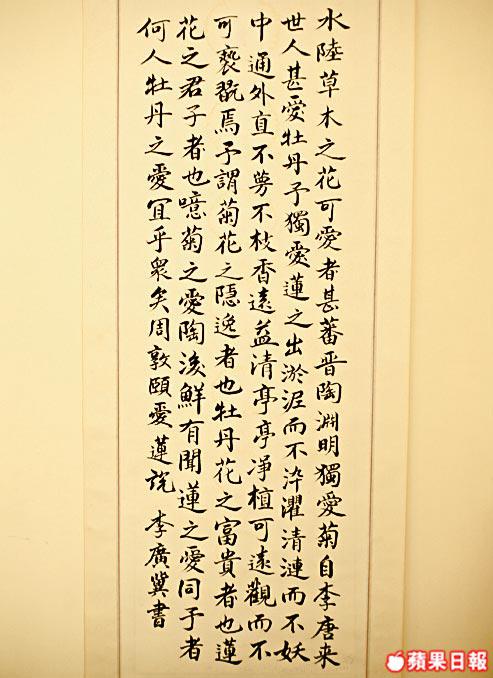 水陸草木之花可愛者甚蕃晋陶淵明獨愛菊自李唐来
世人甚愛牡丹予獨愛蓮之出淤泥而不染濯清漣而不妖
中通外直不蔓不枝香遠益清亭亭净植可遠觀而不
可褻翫焉予謂菊花之隱逸者也牡丹花之富貴者也蓮
花之君子者也噫菊之愛陶後鮮有聞蓮之愛同予者
何人牡丹之愛宜乎衆矣周敦頤愛蓮説 李廣冀書
蘋果日報